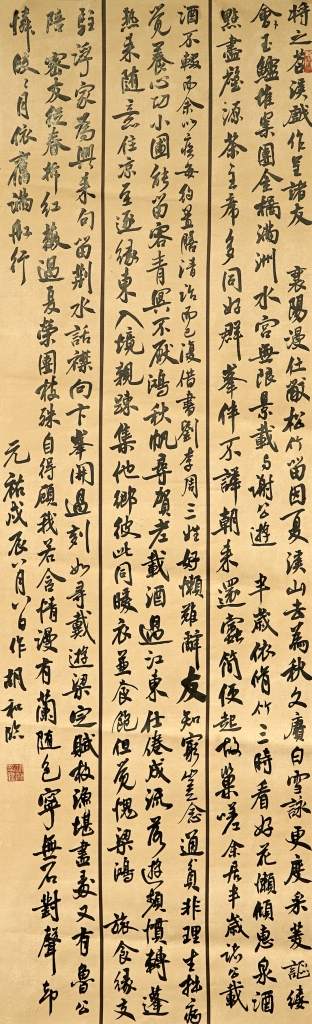 將之苕溪戲作呈諸友 襄陽漫仕黻 松竹留因夏溪山去為秋久賡白雪詠更度采菱謳縷
玉鱸堆案團金橘滿洲水宮無限景載與謝公遊 半歲依脩竹三時看好花懶傾惠泉酒
點盡壑源茶主席多同好群峯伴不譁朝來還蠹簡便起故巢嗟 余居半歲諸公載
酒不輟而余以疾每約置膳清話而已復借書劉李周三姓 好懶難辭友知窮豈念通貧非理生拙病
覺養心功小圃能留客青冥不厭鴻秋帆尋賀老載酒過江東仕倦成流落遊頻慣轉蓬
熱來隨意住涼至逐緣東入境親疎集他鄉彼此同暖衣兼食飽但覺愧梁鴻 旅食緣交
駐浮家為興來句留荊水話襟向卞峯開過剡如尋戴遊梁定賦枚漁堪畫處又有魯公
陪 密友從春拆紅薇過夏榮團枝殊自得顧我若含情漫有蘭隨色寧無石對聲却
憐皎皎月依舊滿船行
元祐戊辰八月八日作 胡和臨